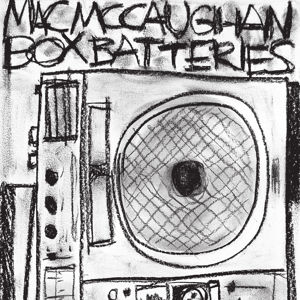 MAC MCCAUGHAN
BOX BATTERIES